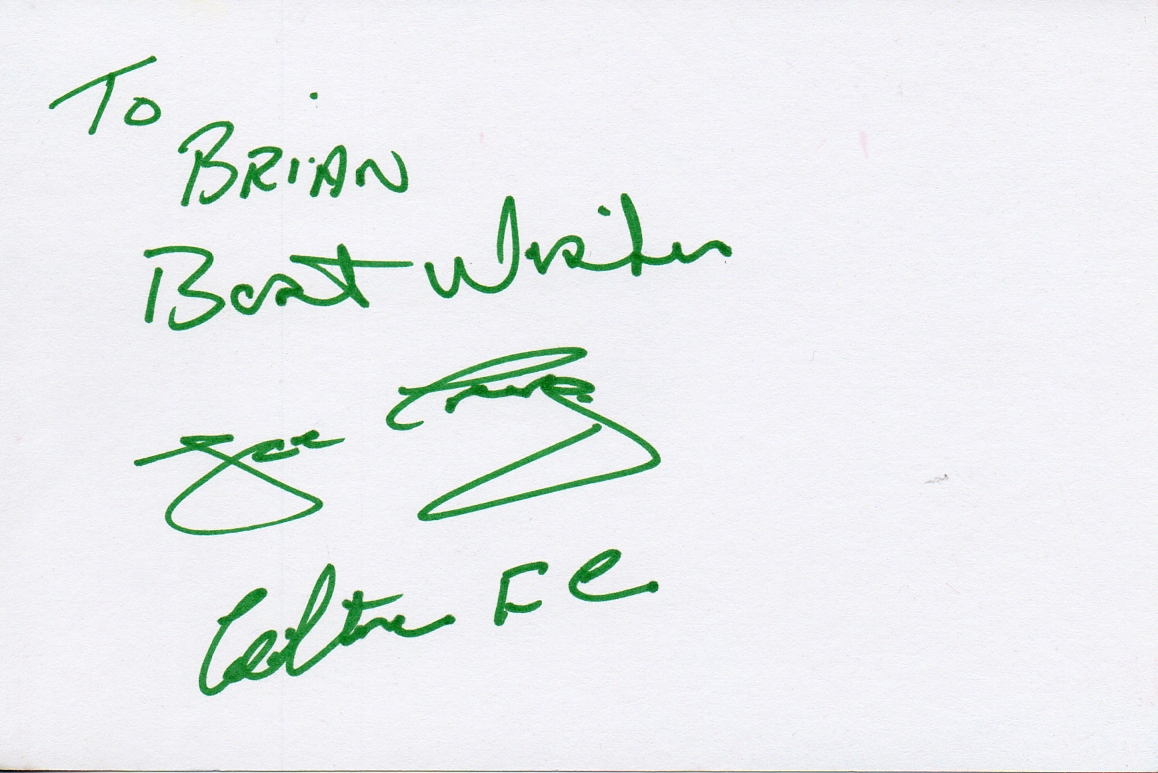 To
BRIAN
Best Wishes
Joe Craig
Celtic FC